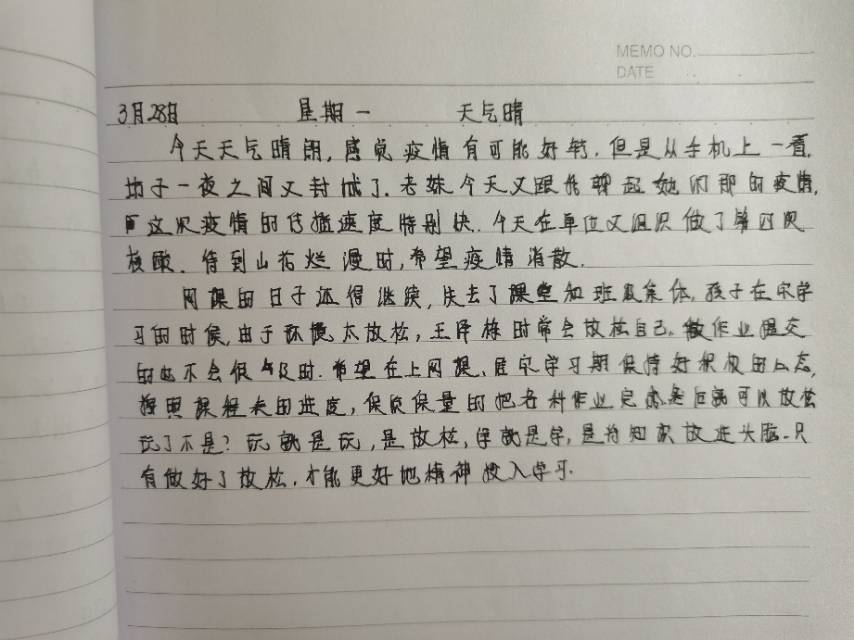 MEMO NO.
DATE
3月28日 星期一 天气晴
今天天气晴朗,感觉疫情有可能好转.但是从手机上一看,
一夜之间又封城了.老妹今天又跟我聊起她们那的疫情,
这次疫情的传播速度特别快.今天在单位又组织做了第四次
核酸.待到山花烂漫时,希望疫情消散.
网课的日子还得继续,失去了课堂和班级集体,孩子在家学
习的时候,由于环境太放松,王泽栋时常会放松自己.做作业提交
的也不会很及时.希望在上网课、居家学习期保持好积极的心态,
按照课程表的进度,保质保量的把各科作业完成后就可以放松
玩了不是?玩就是玩,是放松,学就是学,是将知识放进头脑.只
有做好了放松,才能更好地精神投入学习.